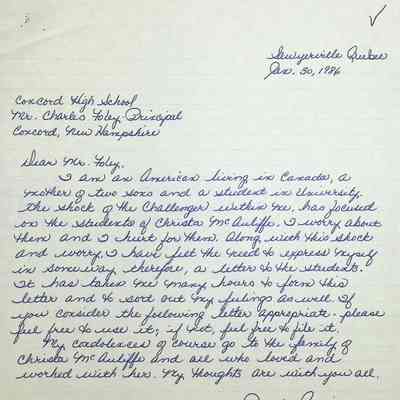 Sawyerville Quebec
Jan. 30, 1986
Concord High School
Mr. Charles Foley. Principal
Concord, New Hampshire
Dear Mr. Foley.
I am an American living in Canada, a
mother of two sons and a student in University.
The shock of the Challenger within me, has focused
on the students of Christa McAuliffe. I worry about
them and I hurt for them. Along with this shock
and worry, I have felt the need to express myself
in someway, therefore, a letter to the students.
It has taken me many hours to form this
letter and to sort out my feelings as well. If
you consider the following letter appropriate - please
feel free to use it; if not, feel free to file it.
My condolences of course go to the family of
Christa McAuliffe and all who loved and
worked with her. My thoughts are with you all.